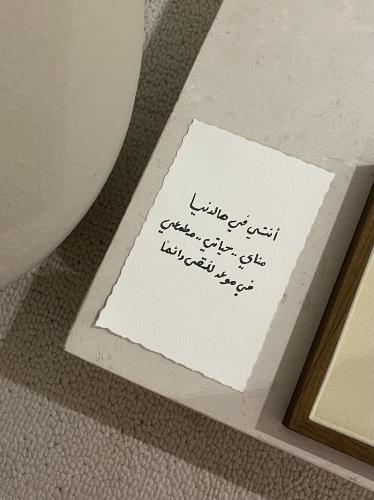 أنتي في هالدنيا
مناي .. حياتي .. مطمعي
في موعد لنلتقي دائما